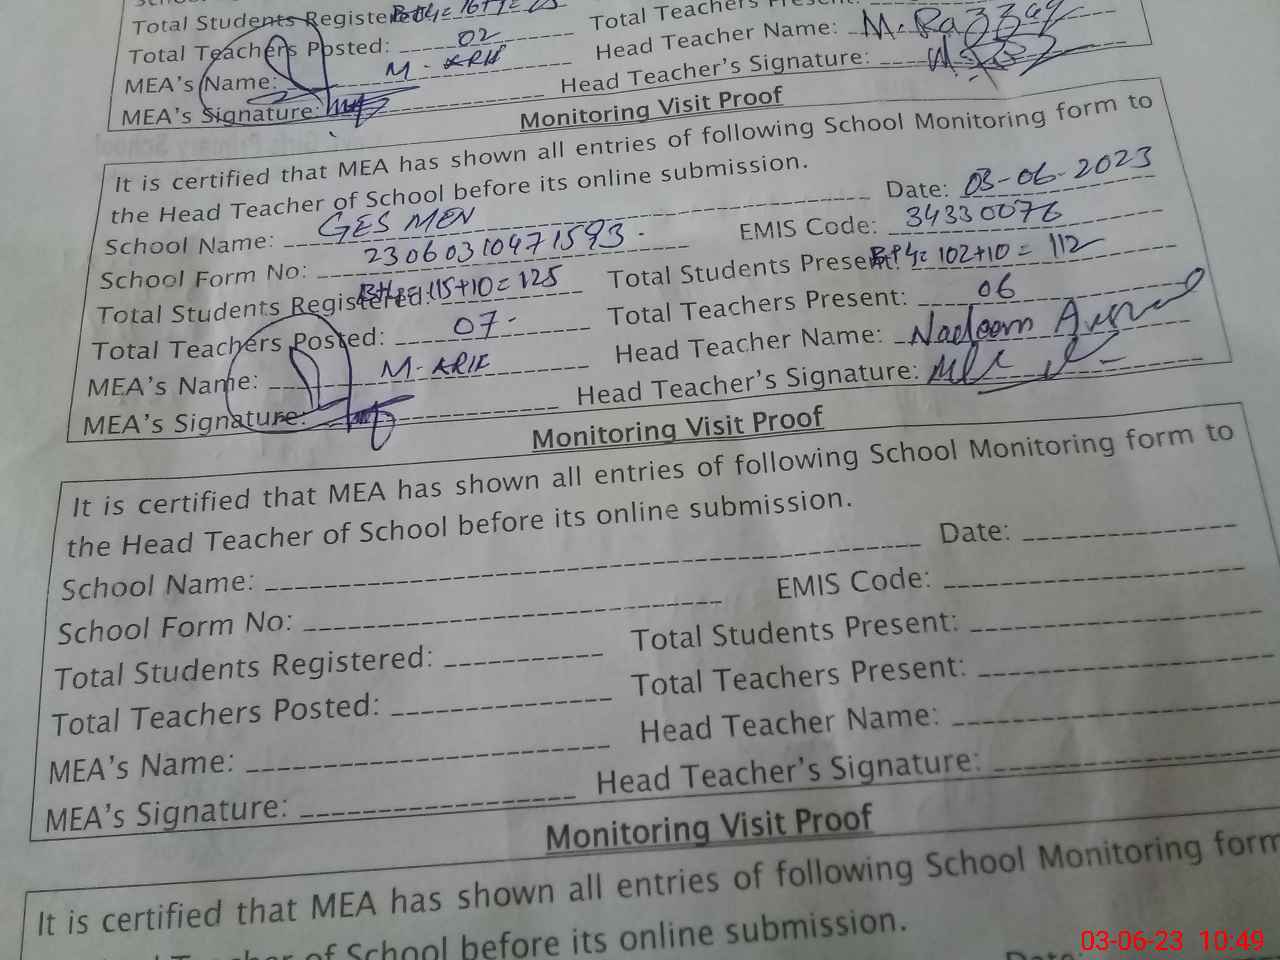 Total Students Registered: B+4= 16+7=23
Total Teachers Posted: 02 Total Teachers Present:
MEA's Name: M. ARIF Head Teacher Name: M.
MEA's Signature: Head Teacher's Signature:
Monitoring Visit Proof
It is certified that MEA has shown all entries of following School Monitoring form to
the Head Teacher of School before its online submission.
School Name: GES MEN Date: 03-06-2023
School Form No: 23060310471593. EMIS Code: 34330076
Total Students Registered: 115+10=125 Total Students Present: 102+10= 112
Total Teachers Posted: 07 Total Teachers Present: 06
MEA's Name: M. ARIF Head Teacher Name: Nadeem
MEA's Signature: Head Teacher's Signature:
Monitoring Visit Proof
It is certified that MEA has shown all entries of following School Monitoring form to
the Head Teacher of School before its online submission.
School Name: Date:
School Form No: EMIS Code:
Total Students Registered: Total Students Present:
Total Teachers Posted: Total Teachers Present:
MEA's Name: Head Teacher Name:
MEA's Signature: Head Teacher's Signature:
Monitoring Visit Proof
It is certified that MEA has shown all entries of following School Monitoring form
of School before its online submission.
Date:
03-06-23 10:49